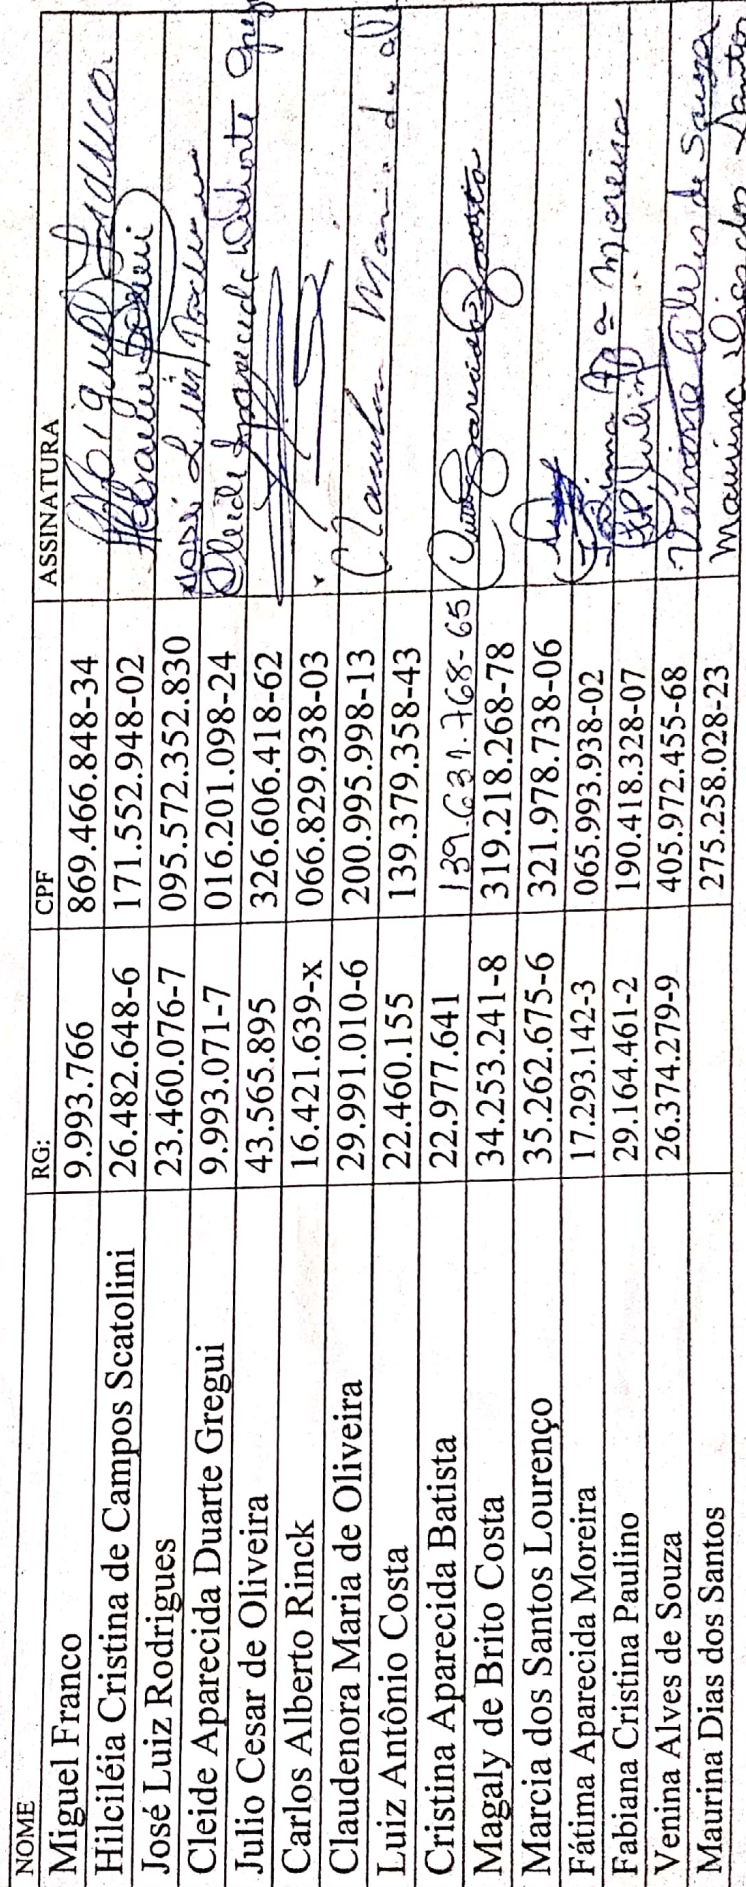 NOME RG: CPF ASSINATURA
Miguel Franco 9.993.766 869.466.848-34 Miguel Franco
Hilciléia Cristina de Campos Scatolini 26.482.648-6 171.552.948-02
José Luiz Rodrigues 23.460.076-7 095.572.352.830 José Luiz
Cleide Aparecida Duarte Gregui 9.993.071-7 016.201.098-24 Cleide Aparecida Duarte
Julio Cesar de Oliveira 43.565.895 326.606.418-62
Carlos Alberto Rinck 16.421.639-x 066.829.938-03
Claudenora Maria de Oliveira 29.991.010-6 200.995.998-13 Maria de
Luiz Antônio Costa 22.460.155 139.379.358-43
Cristina Aparecida Batista 22.977.641 139.631.768-65
Magaly de Brito Costa 34.253.241-8 319.218.268-78
Marcia dos Santos Lourenço 35.262.675-6 321.978.738-06
Fátima Aparecida Moreira 17.293.142-3 065.993.938-02 Fátima Apª Moreira
Fabiana Cristina Paulino 29.164.461-2 190.418.328-07
Venina Alves de Souza 26.374.279-9 405.972.455-68 Venina Alves de Souza
Maurina Dias dos Santos 275.258.028-23 Maurina Dias dos Santos